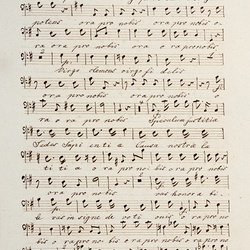 potens ora pro nobis ora pro nobis o-
ra ora pro nobis ora pro nobis
Virgo clemens virgo fi delis
ora pro nobis ora pro nobis
ora o ra pro nobis Speculum justitia
Sedes Sapi enti a Causa nostra la
ti ti a o ra pro no bis ora pro nobis
ora pro nobis vas honora bi-
le vas in signe de voti onis o ra pro no
bis o ra pro no bis o ra pro nobis ora pro n